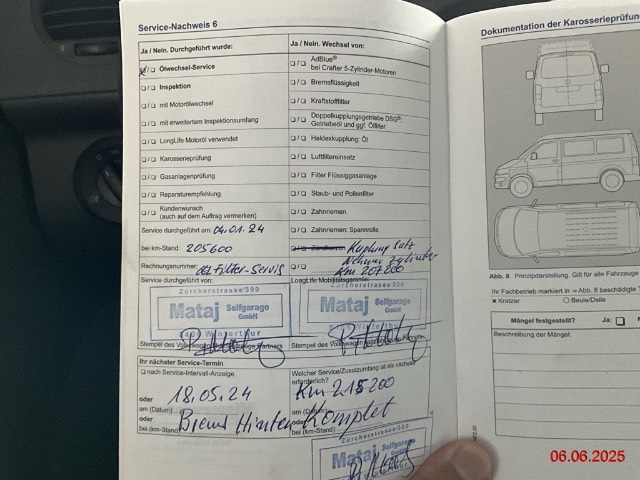 Service-Nachweis 6
Ja / Nein. Durchgeführt wurde:
Ölwechsel-Service
Inspektion
mit Motorölwechsel
mit erweitertem Inspektionsumfang
LongLife Motoröl verwendet
Karosserieprüfung
Gasanlagenprüfung
Reparaturempfehlung
Kundenwunsch
(auch auf dem Auftrag vermerken)
Service durchgeführt am: 04.01.24
bei km-Stand: 205600
Rechnungsnummer:
Service durchgeführt von:
Zürcherstrasse 300
Mataj Selfgarage
GmbH
Ihr nächster Service-Termin
nach Service-Intervall-Anzeige
oder 18.05.24
am (Datum)
oder
bei (km-Stand)
Ja / Nein. Wechsel von:
AdBlue®
bei Crafter 5-Zylinder-Motoren
Bremsflüssigkeit
Kraftstofffilter
Doppelkupplungsgetriebe DSG®:
Getriebeöl und ggf. Ölfilter
Haldexkupplung: Öl
Luftfiltereinsatz
Filter Flüssiggasanlage
Staub- und Pollenfilter
Zahnriemen
Zahnriemen: Spannrolle
Kuplung Satz
Km 207200
LongLife Mobilitätsgarantie:
Zürcherstrasse 300
Mataj Selfgarage
GmbH
Welcher Service/Zusatzumfang ist als nächster
erforderlich?
Km 215200
oder
am (Datum)
oder
bei (km-Stand)
Hinten Komplet
Zürcherstrasse 300
Mataj Selfgarage
GmbH
Dokumentation der Karosserieprüfun
Abb. 8 Prinzipdarstellung. Gilt für alle Fahrzeuge
Ihr Fachbetrieb markiert in ⇒ Abb. 8 beschädigte
× Kratzer ○ Beule/Delle
Mängel festgestellt? Ja:
Beschreibung der Mängel:
06.06.2025